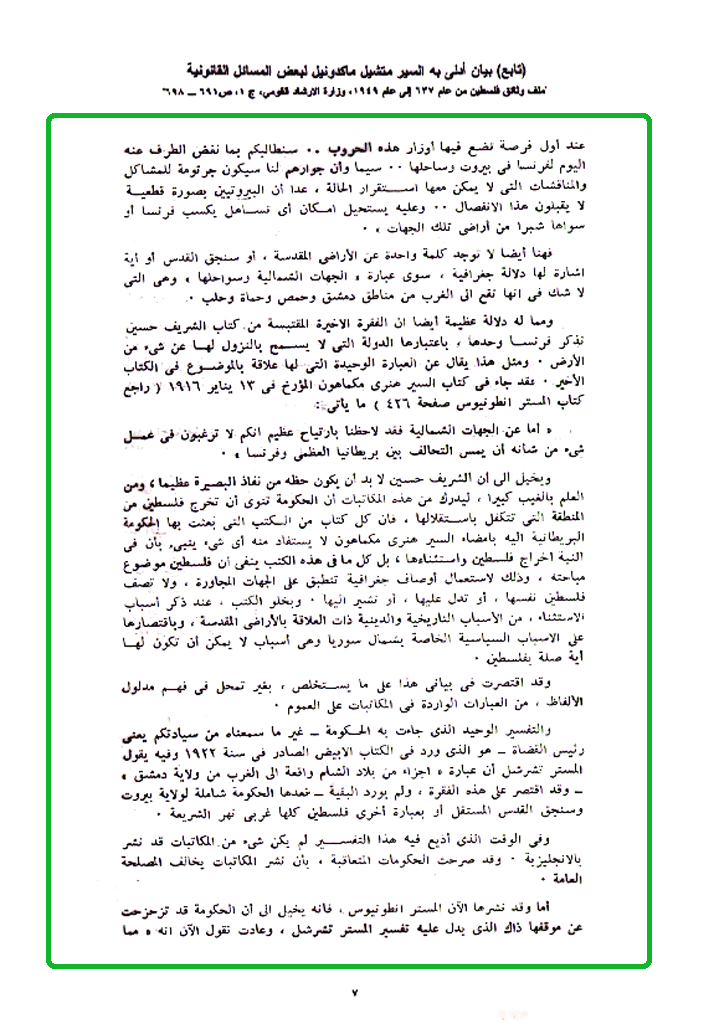 (تابع) بيان أدلى به السير متشيل ماكدونيل لبعض المسائل القانونية
ملف وثائق فلسطين من عام ٦٣٧ إلى عام ١٩٤٩، وزارة الارشاد القومي، ج ١، ص ٦٩١ – ٦٩٨
عند أول فرصة تضع فيها أوزار هذه الحروب ٠٠ سنطالبكم بما نغض الطرف عنه
اليوم لفرنسا في بيروت وساحلها ٠٠ سيما وأن جوارهم لنا سيكون جرثومة للمشاكل
والمناقشات التى لا يمكن معها استقرار الحالة ، عدا أن البيروتيين بصورة قطعية
لا يقبلون هذا الانفصال ٠٠ وعليه يستحيل امكان أى تساهل يكسب فرنسا أو
سواها شبرا من أراضى تلك الجهات » ٠
فهنا أيضا لا توجد كلمة واحدة عن الأراضى المقدسة ، أو سنجق القدس أو أية
اشارة لها دلالة جغرافية ، سوى عبارة « الجهات الشمالية وسواحلها » وهى التى
لا شك فى انها تقع الى الغرب من مناطق دمشق وحمص وحماة وحلب ٠
ومما له دلالة عظيمة أيضا ان الفقرة الاخيرة المقتبسة من كتاب الشريف حسين
تذكر فرنسا وحدها ، باعتبارها الدولة التى لا يسمح بالنزول لها عن شىء من
الأرض ٠ ومثل هذا يقال عن العبارة الوحيدة التى لها علاقة بالموضوع فى الكتاب
الأخير ٠ فقد جاء فى كتاب السير هنرى مكماهون المؤرخ فى ١٣ يناير ١٩١٦ ( راجع
كتاب المستر انطونيوس صفحة ٤٢٦ ) ما يأتى :
« أما عن الجهات الشمالية فقد لاحظنا بارتياح عظيم انكم لا ترغبون فى عمل
شىء من شانه أن يمس التحالف بين بريطانيا العظمى وفرنسا » ٠
ويخيل الى أن الشريف حسين لا بد أن يكون حظه من نفاذ البصيرة عظيما ، ومن
العلم بالغيب كبيرا ، ليدرك من هذه المكاتبات أن الحكومة تنوى أن تخرج فلسطين من
المنطقة التى تتكفل باستقلالها ، فان كل كتاب من الكتب التى بعثت بها الحكومة
البريطانية اليه بامضاء السير هنرى مكماهون لا يستفاد منه أى شىء ينبىء بأن فى
النية اخراج فلسطين واستثناءها ، بل كل ما فى هذه الكتب ينفى أن فلسطين موضوع
مباحثه ، وذلك لاستعمال أوصاف جغرافية تنطبق على الجهات المجاورة ، ولا تصف
فلسطين نفسها ، أو تدل عليها ، أو تشير اليها ٠ وبخلو الكتب ، عند ذكر أسباب
الاستثناء ، من الأسباب التاريخية والدينية ذات العلاقة بالأراضى المقدسة ، وباقتصارها
على الاسباب السياسية الخاصة بشمال سوريا وهى أسباب لا يمكن أن تكون لها
أية صلة بفلسطين ٠
وقد اقتصرت فى بيانى هذا على ما يستخلص ، بغير تمحل فى فهم مدلول
الألفاظ ، من العبارات الواردة فى المكاتبات على العموم ٠
والتفسير الوحيد الذى جاءت به الحكومة – غير ما سمعناه من سيادتكم يعنى
رئيس القضاة – هو الذى ورد فى الكتاب الابيض الصادر فى سنة ١٩٢٢ وفيه يقول
المستر تشرشل أن عبارة « اجزاء من بلاد الشام واقعة الى الغرب من ولاية دمشق »
– وقد اقتصر على هذه الفقرة ، ولم يورد البقية – تعدها الحكومة شاملة لولاية بيروت
وسنجق القدس المستقل أو بعبارة أخرى فلسطين كلها غربى نهر الشريعة ٠
وفى الوقت الذى أذيع فيه هذا التفسير لم يكن شىء من المكاتبات قد نشر
بالانجليزية ٠ وقد صرحت الحكومات المتعاقبة ، بأن نشر المكاتبات يخالف المصلحة
العامة ٠
أما وقد نشرها الآن المستر انطونيوس ، فانه يخيل الى أن الحكومة قد تزحزحت
عن موقفها ذاك الذى يدل عليه تفسير المستر تشرشل ، وعادت تقول الآن انه « مما
٧